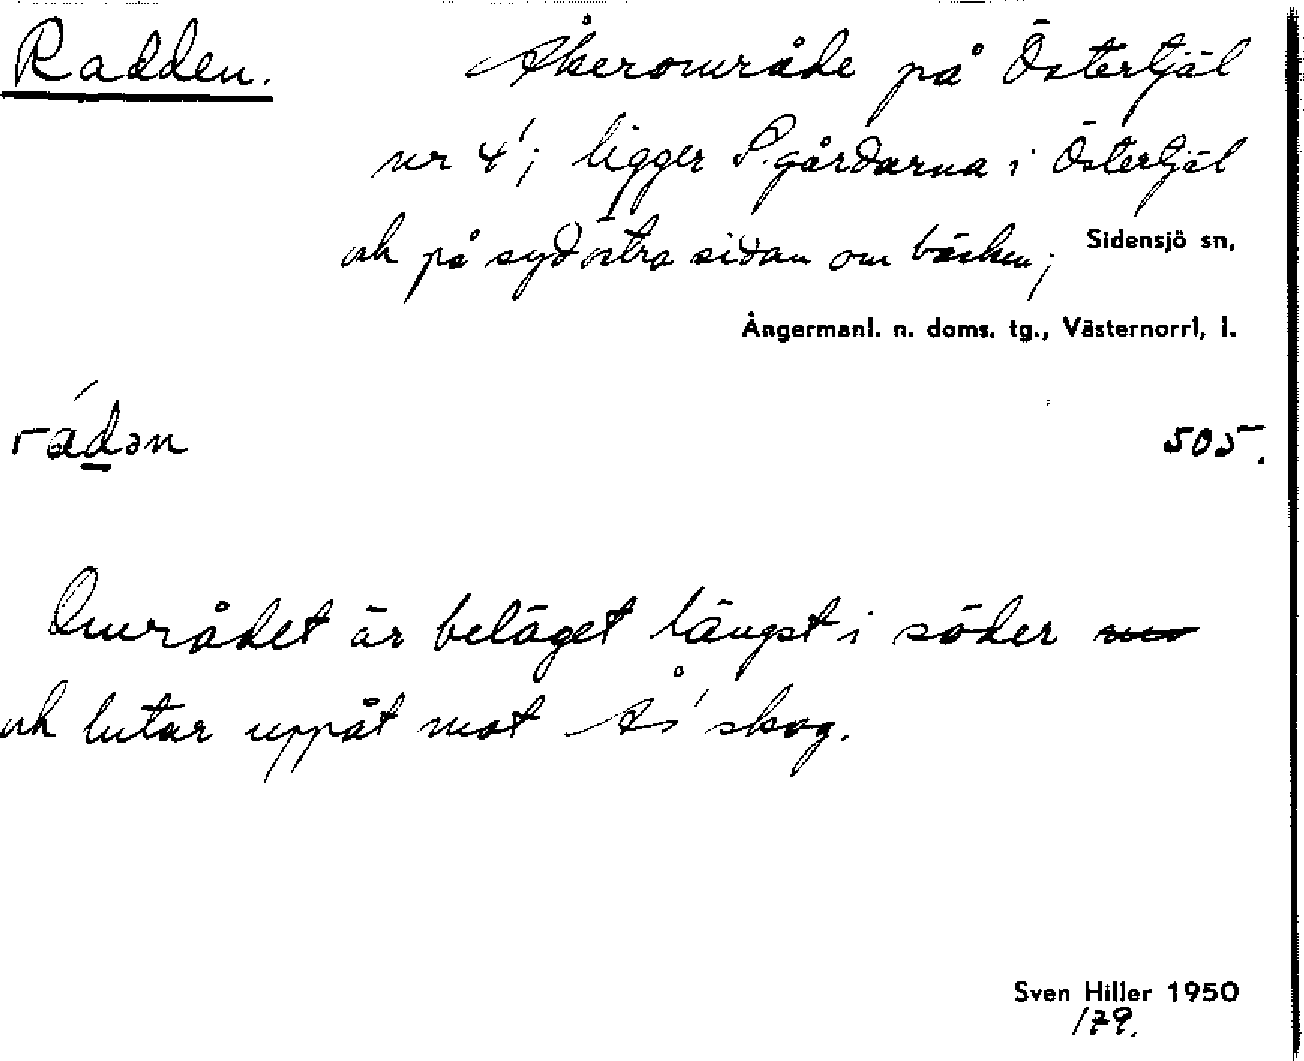 Radden. Åkerområde på Östertjäl
nr 4'; ligger S. gårdarna i Östertjäl
och på sydöstra sidan om bäcken; Sidensjö sn,
Ångermanl. n. doms. tg., Västernorrl, l.
rádən 505.
Området är beläget längst i söder
och lutar uppåt mot Ås' skog.
Sven Hiller 1950
/79.